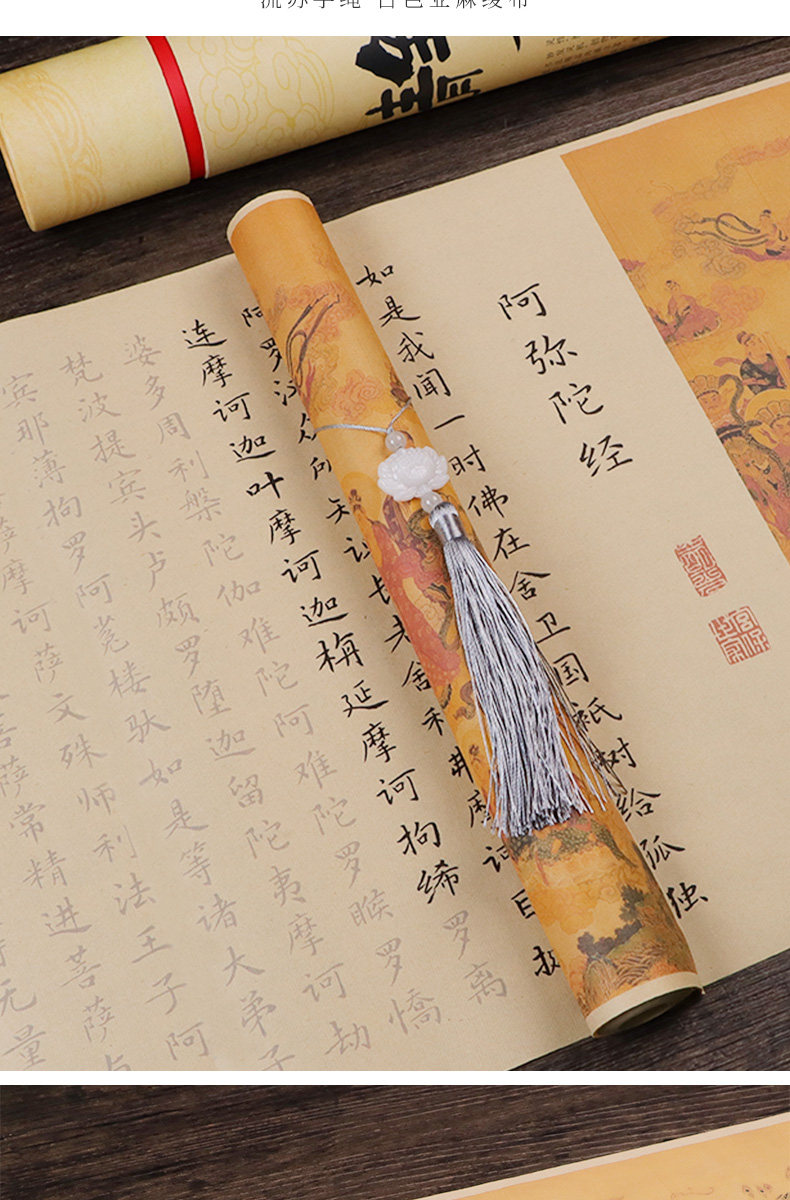 流苏手绳 色亚麻绫布
阿弥陀经
如是我闻一时佛在舍卫国祇树给孤独
阿罗汉众所知识长老舍利弗摩诃目
连摩诃迦叶摩诃迦栴延摩诃拘絺罗离
婆多周利槃陀伽难陀阿难陀罗睺罗憍
梵波提宾头卢颇罗堕迦留陀夷摩诃劫
宾那薄拘罗阿菟楼驮如是等诸大弟子
萨摩诃萨文殊师利法王子阿
菩萨常精进菩萨
无量